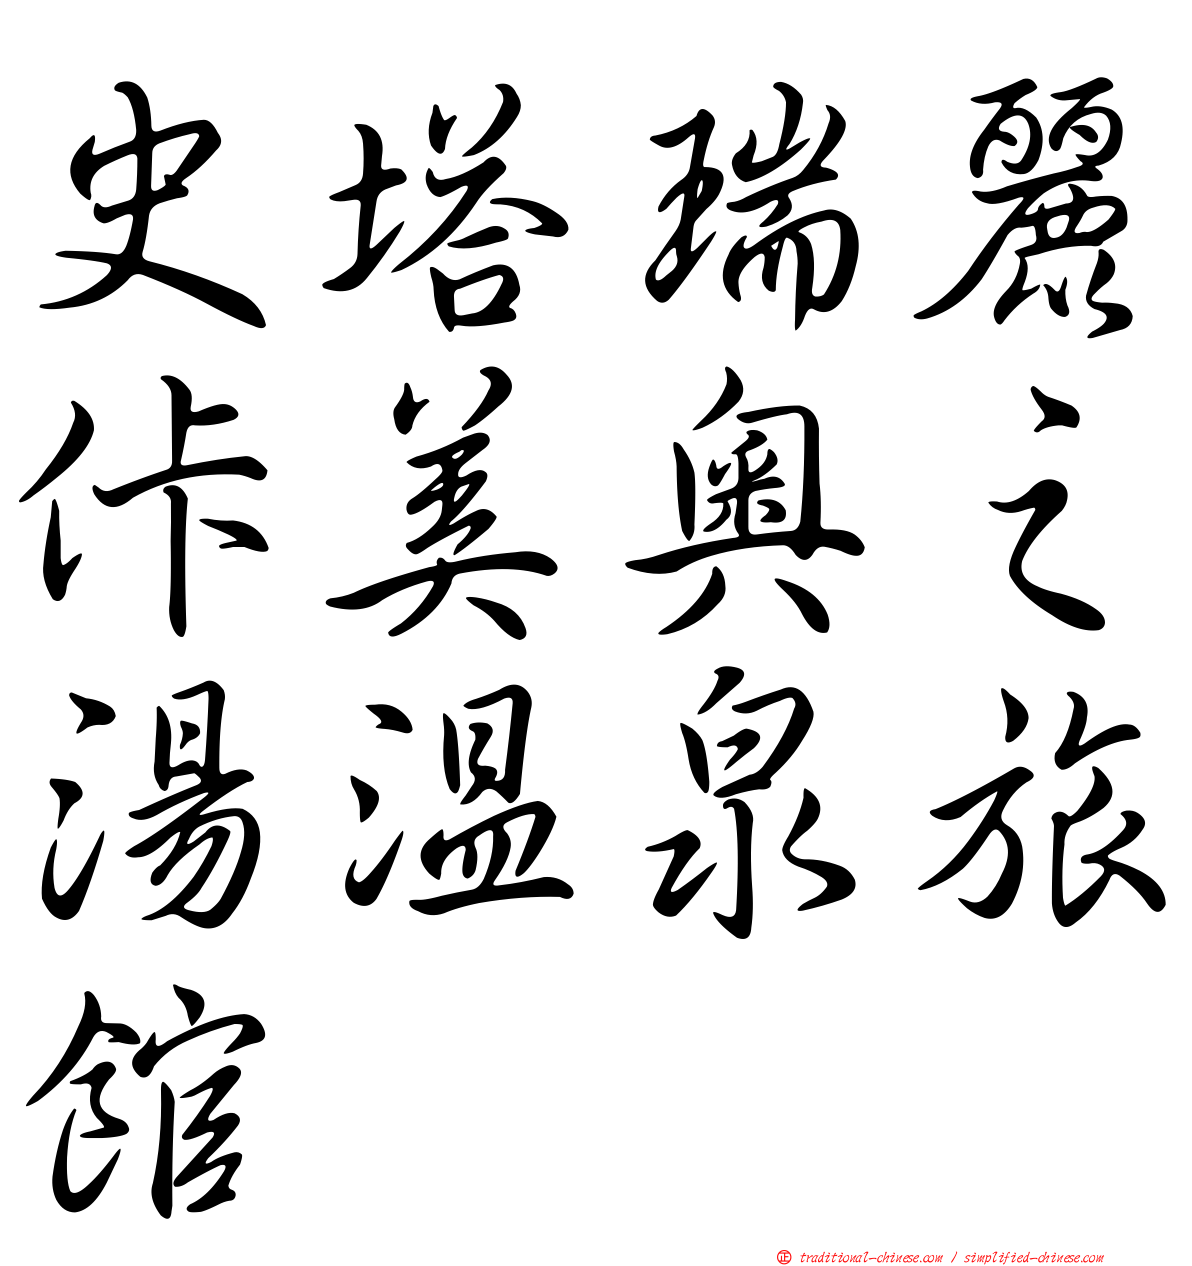 史塔瑞麗
佧美奧之
湯溫泉旅
館
正 traditional-chinese.com / simplified-chinese.com